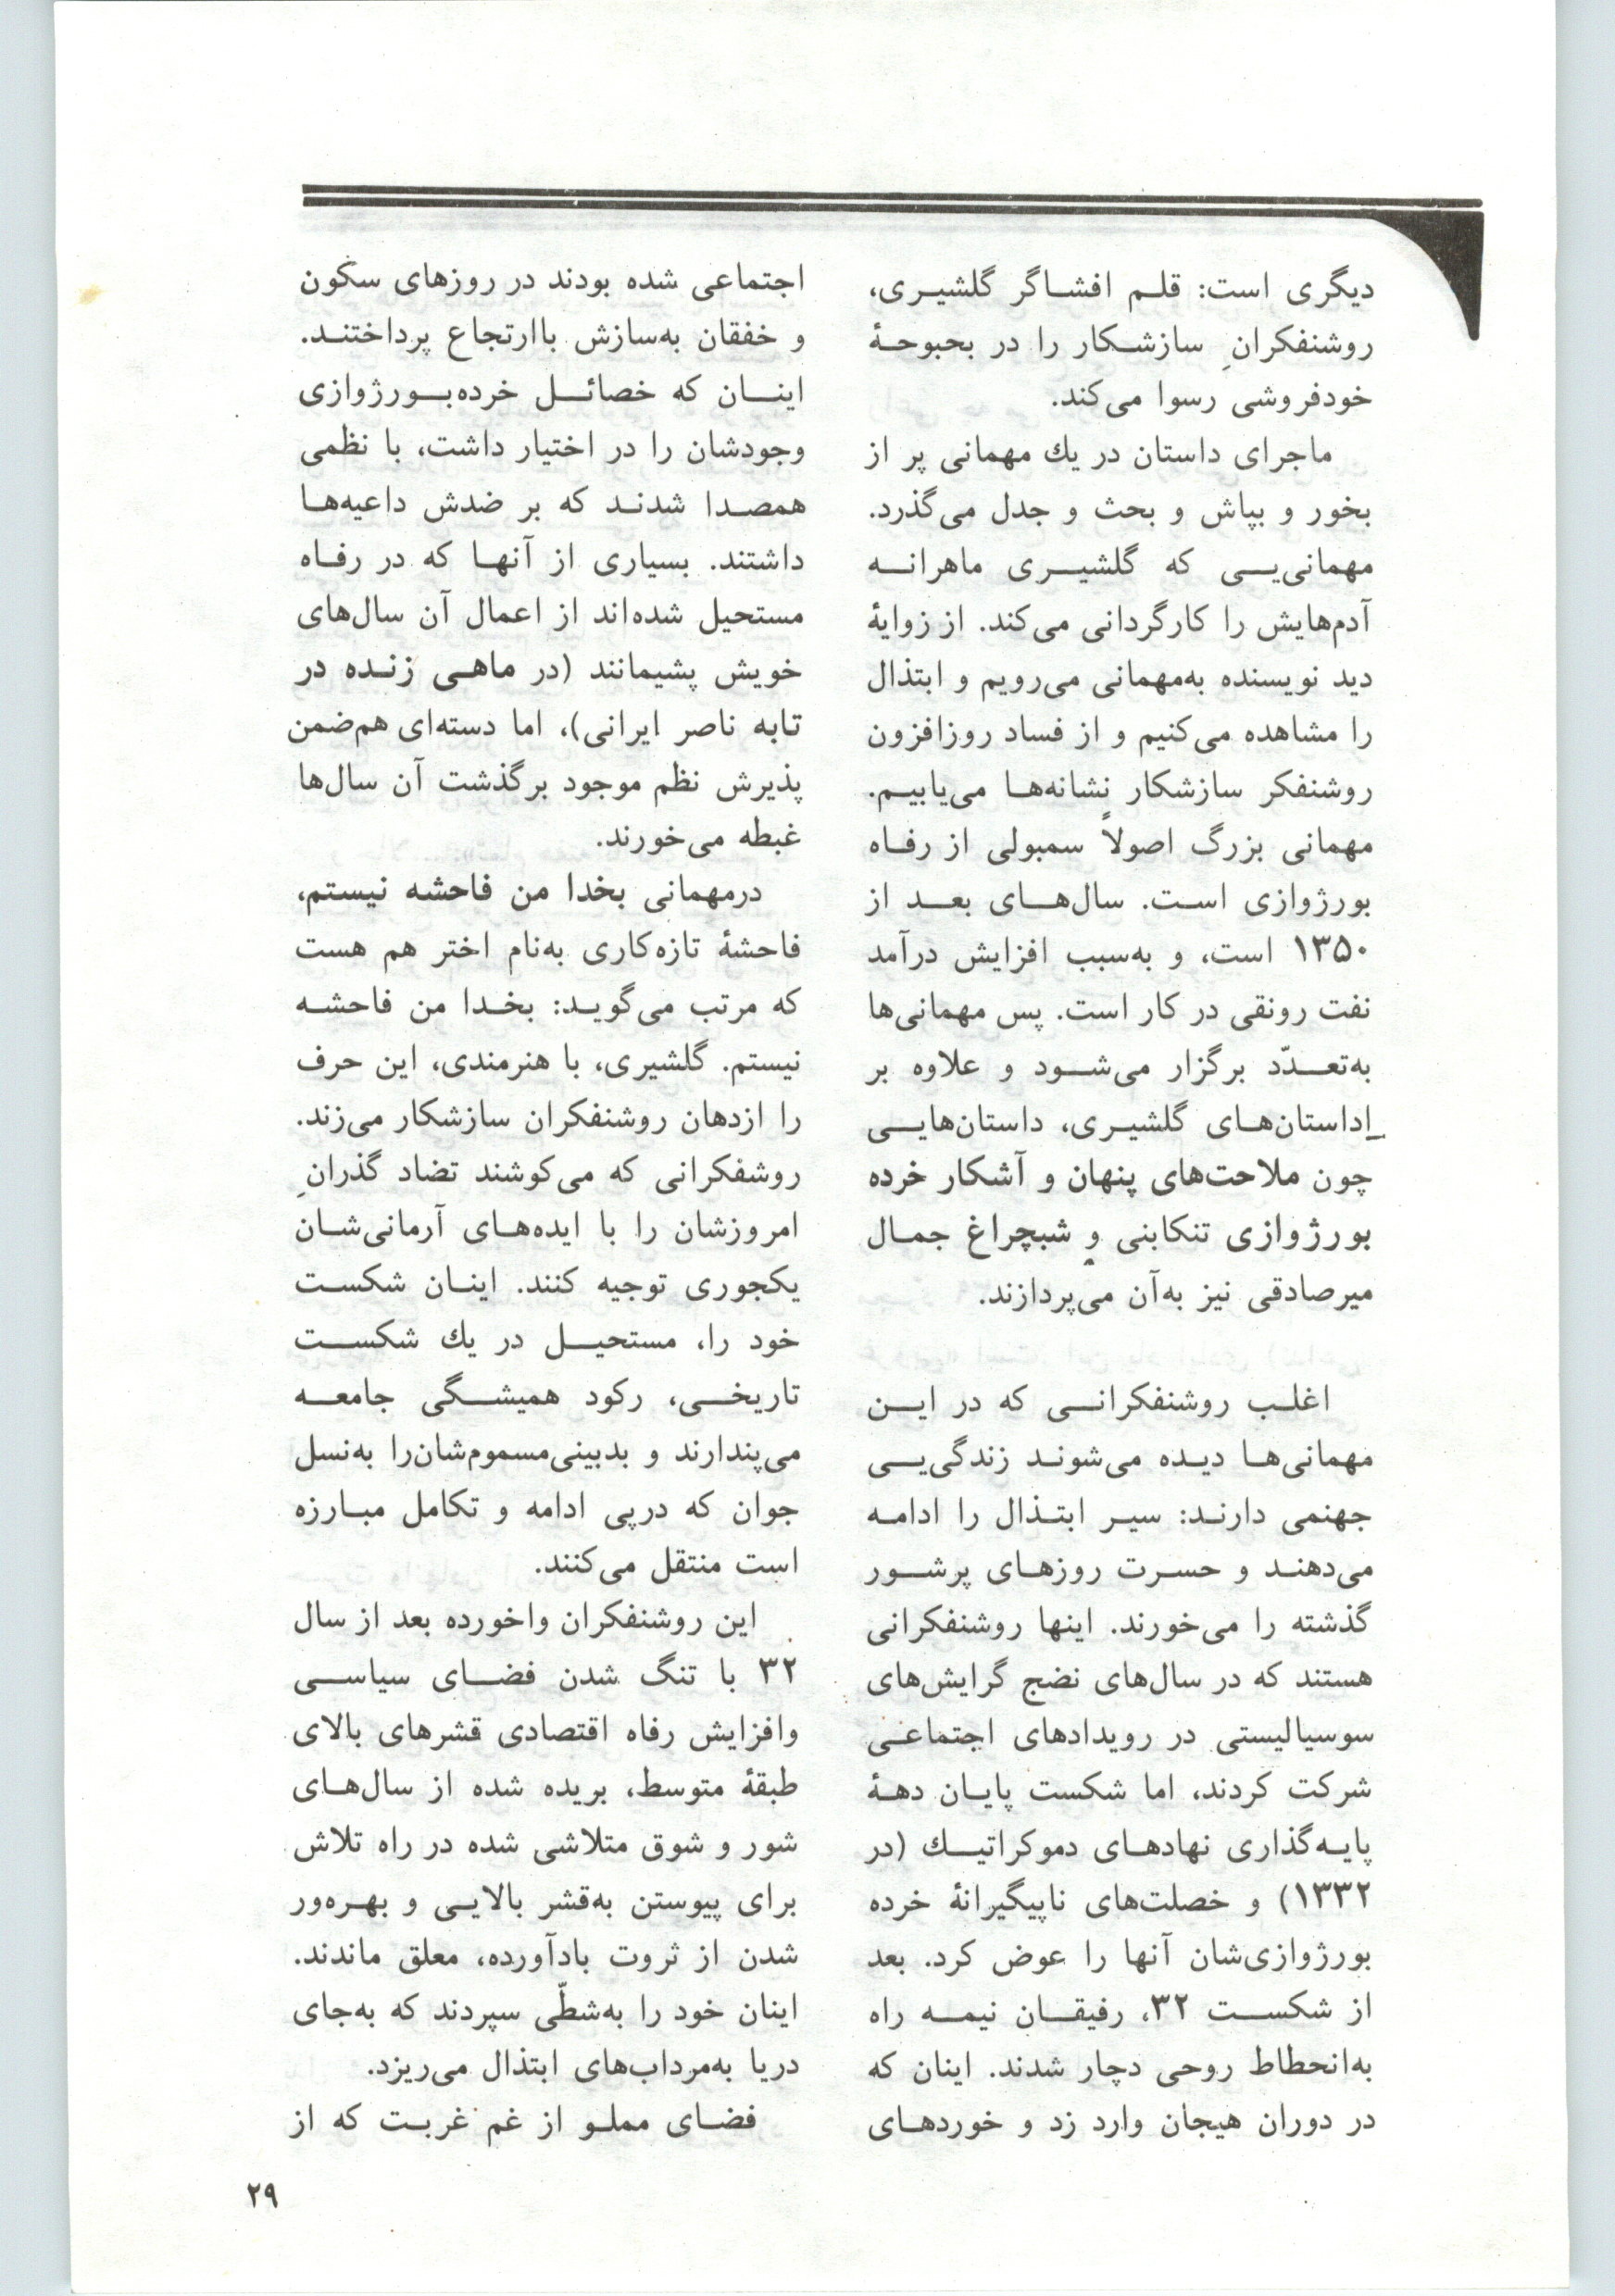 دیگری است: قلم افشاگر گلشیری،
روشنفکرانِ سازشکار را در بحبوحهٔ
خودفروشی رسوا می‌کند.
ماجرای داستان در یك مهمانی پر از
بخور و بپاش و بحث و جدل می‌گذرد.
مهمانی‌یی که گلشیری ماهرانه
آدم‌هایش را کارگردانی می‌کند. از زوایهٔ
دید نویسنده به‌مهمانی می‌رویم و ابتذال
را مشاهده می‌کنیم و از فساد روزافزون
روشنفکر سازشکار نشانه‌ها می‌یابیم.
مهمانی بزرگ اصولاً سمبولی از رفاه
بورژوازی است. سال‌های بعد از
۱۳۵۰ است، و به‌سبب افزایش درآمد
نفت رونقی در کار است. پس مهمانی‌ها
به‌تعدّد برگزار می‌شود و علاوه بر
داستان‌های گلشیری، داستان‌هایی
چون ملاحت‌های پنهان و آشکار خرده
بورژوازی تنکابنی و شبچراغ جمال
میرصادقی نیز به‌آن می‌پردازند.
اغلب روشنفکرانی که در این
مهمانی‌ها دیده می‌شوند زندگی‌یی
جهنمی دارند: سیر ابتذال را ادامه
می‌دهند و حسرت روزهای پرشور
گذشته را می‌خورند. اینها روشنفکرانی
هستند که در سال‌های نضج گرایش‌های
سوسیالیستی در رویدادهای اجتماعی
شرکت کردند، اما شکست پایان دههٔ
پایه‌گذاری نهادهای دموکراتیك (در
۱۳۳۲) و خصلت‌های ناپیگیرانهٔ خرده
بورژوازی‌شان آنها را عوض کرد. بعد
از شکست ۳۲، رفیقان نیمه راه
به‌انحطاط روحی دچار شدند. اینان که
در دوران هیجان وارد زد و خوردهای
اجتماعی شده بودند در روزهای سکون
و خفقان به‌سازش باارتجاع پرداختند.
اینان که خصائل خرده‌بورژوازی
وجودشان را در اختیار داشت، با نظمی
همصدا شدند که بر ضدش داعیه‌ها
داشتند. بسیاری از آنها که در رفاه
مستحیل شده‌اند از اعمال آن سال‌های
خویش پشیمانند (در ماهی زنده در
تابه ناصر ایرانی)، اما دسته‌ای هم‌ضمن
پذیرش نظم موجود برگذشت آن سال‌ها
غبطه می‌خورند.
درمهمانی بخدا من فاحشه نیستم،
فاحشهٔ تازه‌کاری به‌نام اختر هم هست
که مرتب می‌گوید: بخدا من فاحشه
نیستم. گلشیری، با هنرمندی، این حرف
را ازدهان روشنفکران سازشکار می‌زند.
روشفکرانی که می‌کوشند تضاد گذرانِ
امروزشان را با ایده‌های آرمانی‌شان
یکجوری توجیه کنند. اینان شکست
خود را، مستحیل در یك شکست
تاریخی، رکود همیشگی جامعه
می‌پندارند و بدبینی‌مسموم‌شان‌را به‌نسل
جوان که درپی ادامه و تکامل مبارزه
است منتقل می‌کنند.
این روشنفکران واخورده بعد از سال
۳۲ با تنگ شدن فضای سیاسی
وافزایش رفاه اقتصادی قشرهای بالای
طبقهٔ متوسط، بریده شده از سال‌های
شور و شوق متلاشی شده در راه تلاش
برای پیوستن به‌قشر بالایی و بهره‌ور
شدن از ثروت بادآورده، معلق ماندند.
اینان خود را به‌شطّی سپردند که به‌جای
دریا به‌مرداب‌های ابتذال می‌ریزد.
فضای مملو از غم غربت که از
۲۹